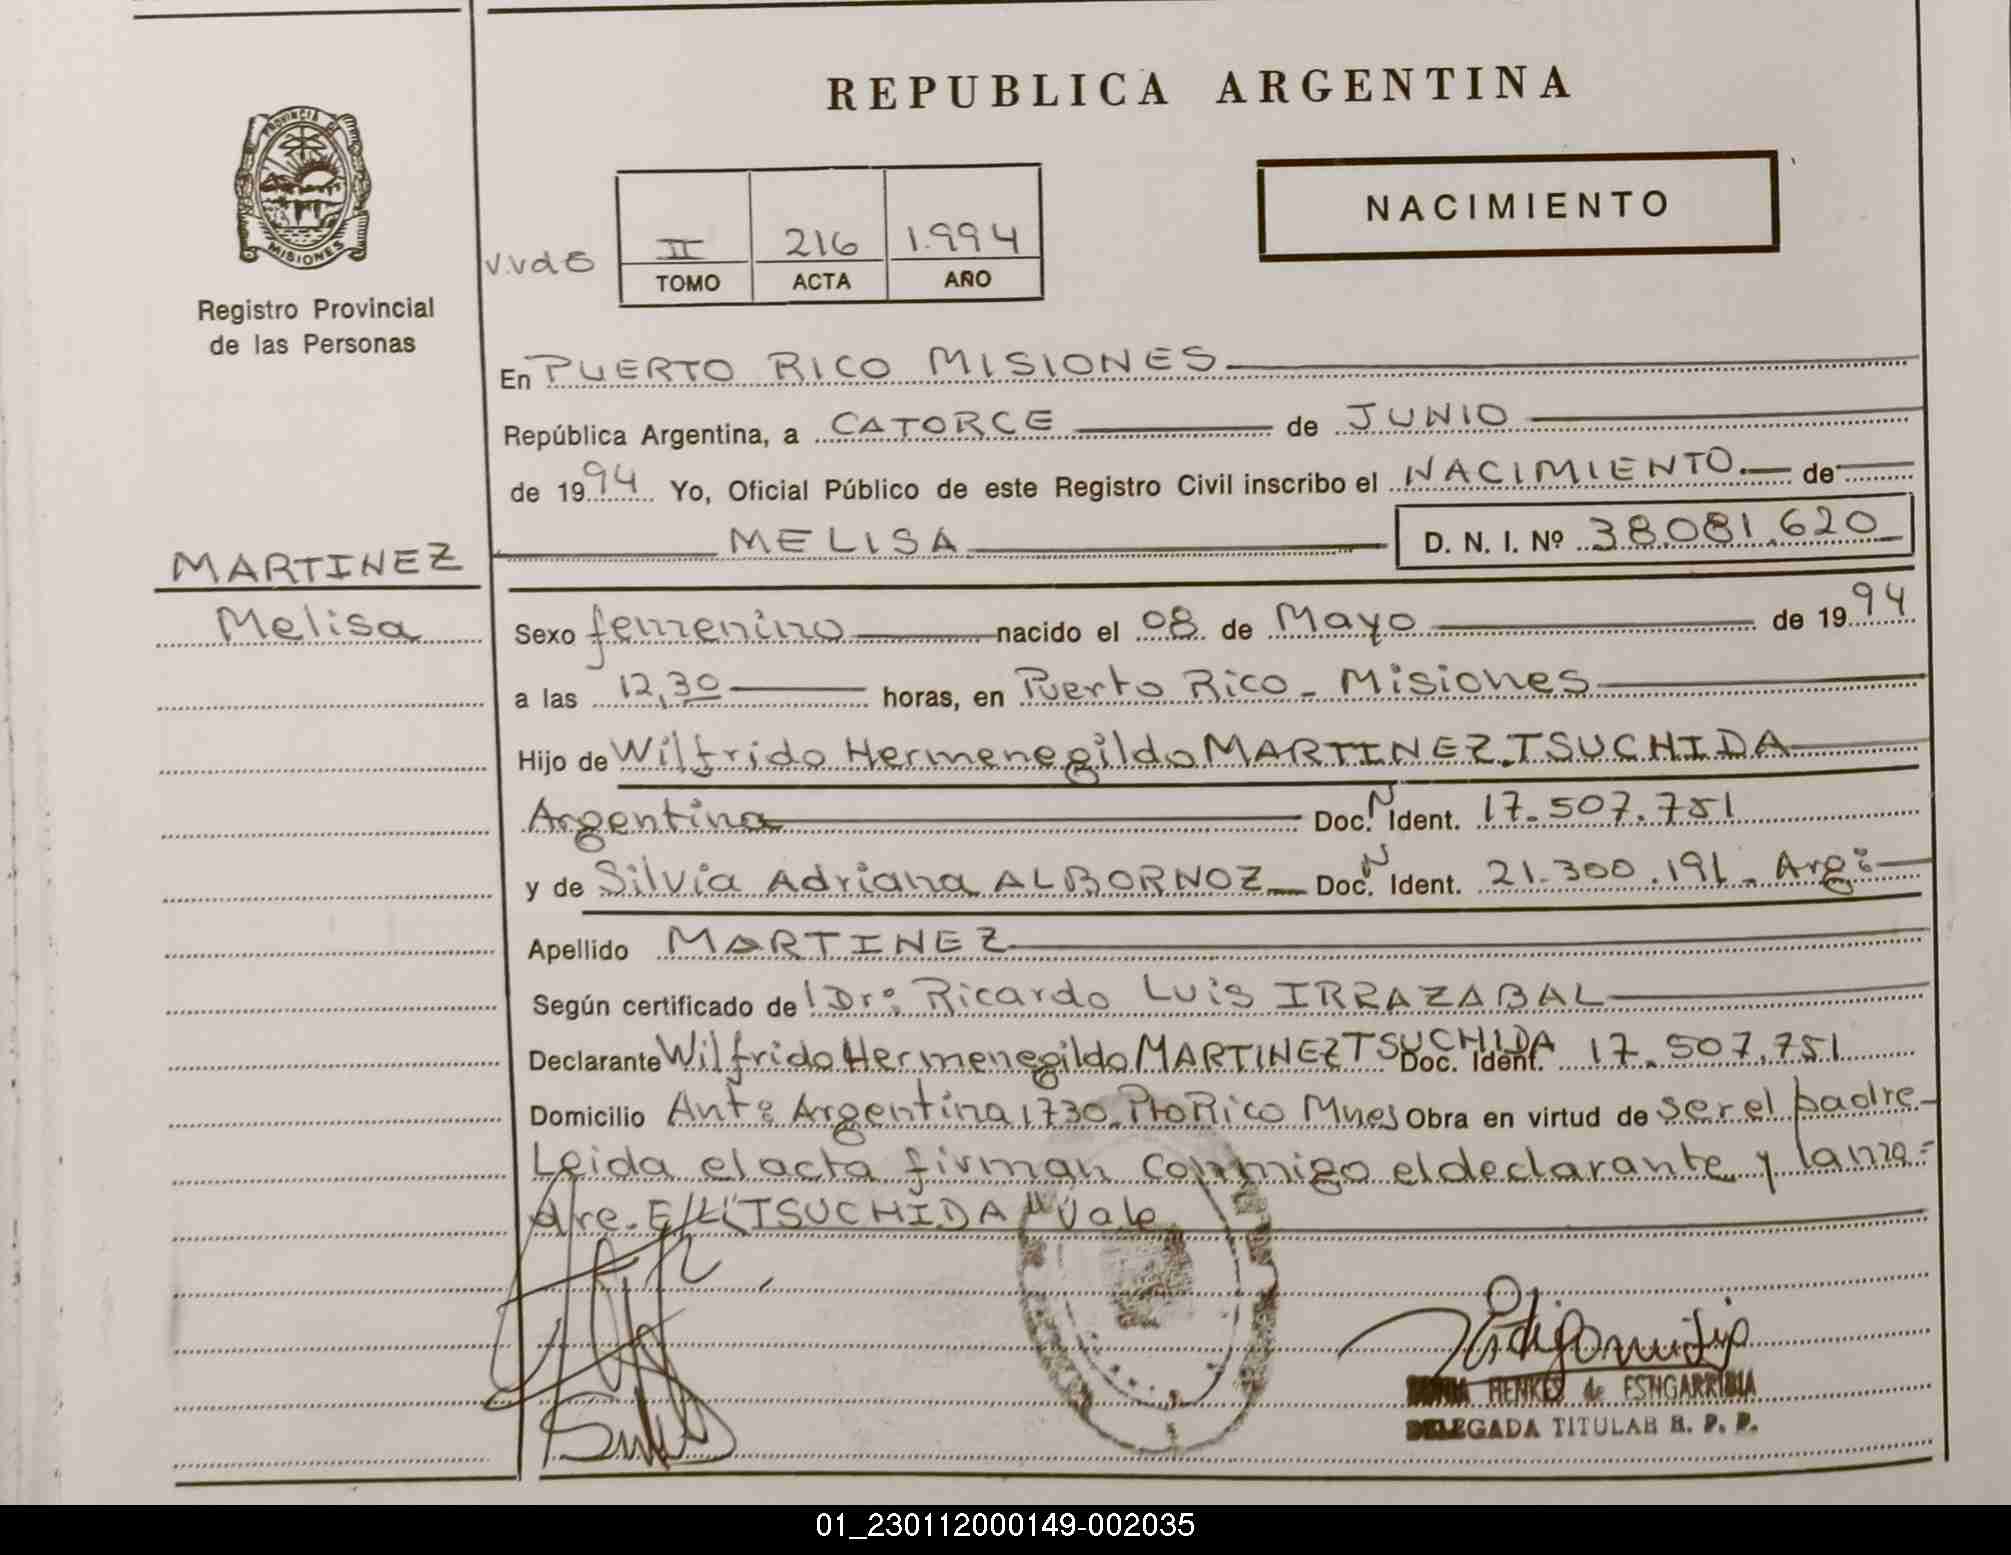 REPUBLICA ARGENTINA
PROVINCIA DE
MISIONES
Registro Provincial
de las Personas
NACIMIENTO
V.Vd6
II 216 1.994
TOMO ACTA AÑO
En PUERTO RICO MISIONES
República Argentina, a CATORCE de JUNIO
de 1994 Yo, Oficial Público de este Registro Civil inscribo el NACIMIENTO.— de
MELISA D. N. I. Nº 38.081.620
MARTINEZ
Melisa
Sexo femenino nacido el 08 de Mayo de 1994
a las 12,30 horas, en Puerto Rico - Misiones
Hijo de Wilfrido Hermenegildo MARTINEZ TSUCHIDA
Argentina Doc. N Ident. 17.507.751
y de Silvia Adriana ALBORNOZ Doc. N Ident. 21.300.191 - Arg:
Apellido MARTINEZ
Según certificado del Dr: Ricardo Luis IRRAZABAL
Declarante Wilfrido Hermenegildo MARTINEZ TSUCHIDA Doc. Ident. 17.507.751
Domicilio Ant: Argentina 1730 Pto Rico Mnes Obra en virtud de ser el padre-
Leida el acta firman conmigo el declarante y la ma=
dre. E/L "TSUCHIDA" Vale
HENKES de
DELEGADA TITULAR R. P. P.
01_230112000149-002035